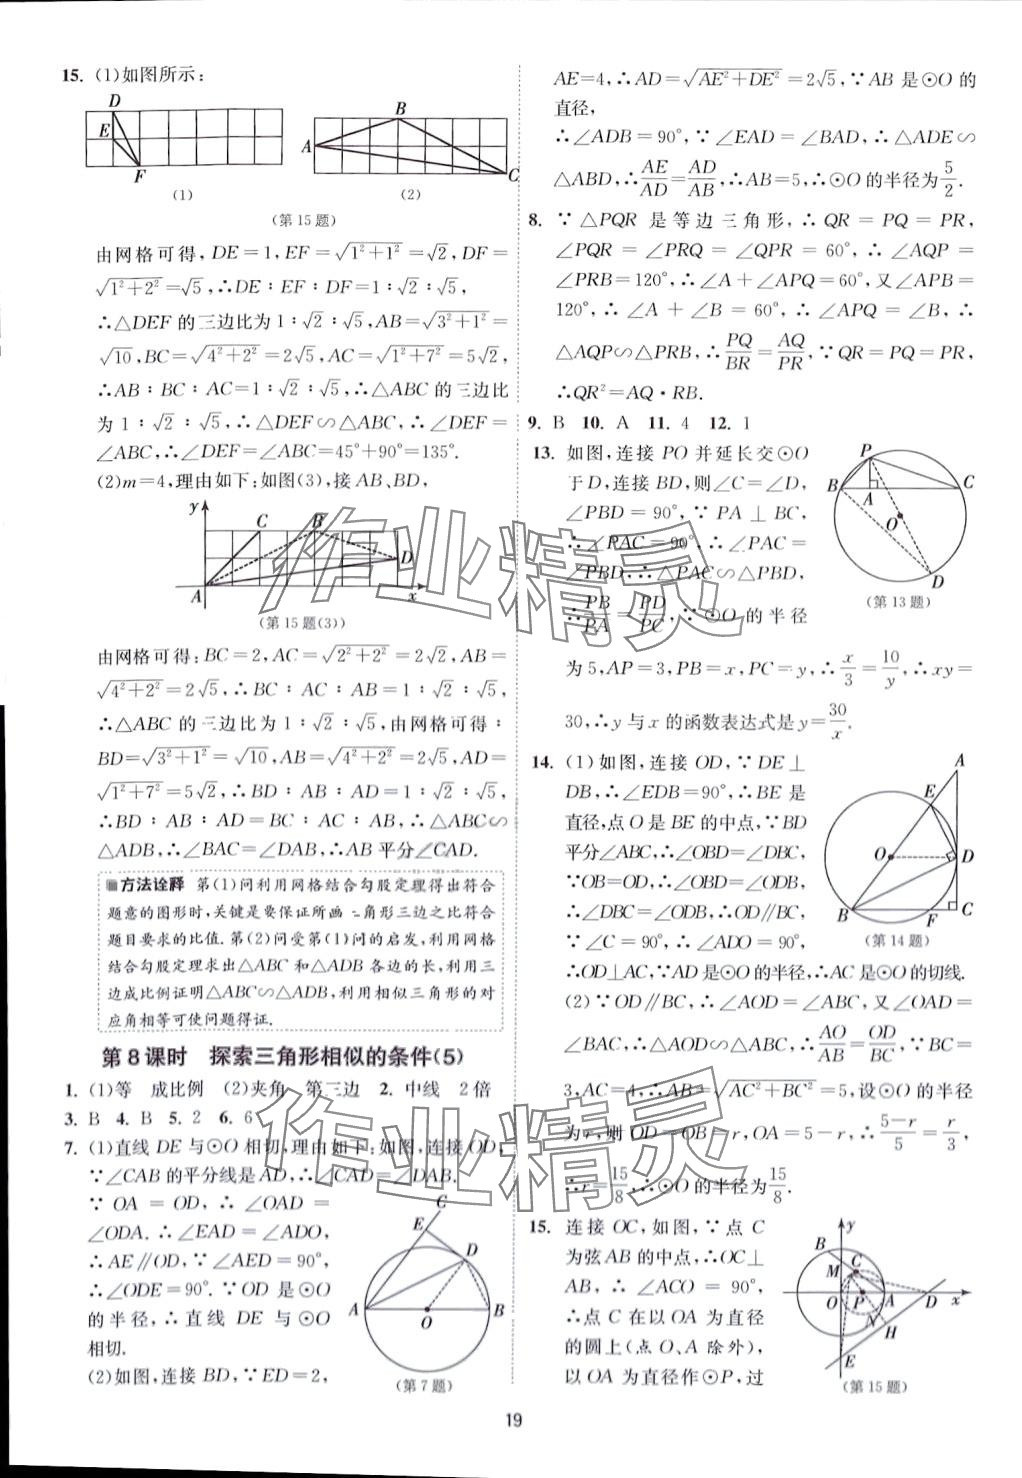 15. (1)如图所示:
D
E
F
(1)
A
B
C
(2)
(第15题)
由网格可得, DE=1, EF=√(1²+1²)=√2, DF=
√(1²+2²)=√5, ∴DE∶EF∶DF=1∶√2∶√5,
∴△DEF 的三边比为 1∶√2∶√5, AB=√(3²+1²)=
√10, BC=√(4²+2²)=2√5, AC=√(1²+7²)=5√2,
∴AB∶BC∶AC=1∶√2∶√5, ∴△ABC 的三边比
为 1∶√2∶√5, ∴△DEF∽△ABC, ∴∠DEF=
∠ABC, ∴∠DEF=∠ABC=45°+90°=135°.
(2)m=4, 理由如下: 如图(3), 接 AB、BD,
y
C
B
D
A
x
(第15题(3))
由网格可得: BC=2, AC=√(2²+2²)=2√2, AB=
√(4²+2²)=2√5, ∴BC∶AC∶AB=1∶√2∶√5,
∴△ABC 的三边比为 1∶√2∶√5, 由网格可得:
BD=√(3²+1²)=√10, AB=√(4²+2²)=2√5, AD=
√(1²+7²)=5√2, ∴BD∶AB∶AD=1∶√2∶√5,
∴BD∶AB∶AD=BC∶AC∶AB, ∴△ABC∽
△ADB, ∴∠BAC=∠DAB, ∴AB 平分∠CAD.
方法诠释 第(1)问利用网格结合勾股定理得出符合
题意的图形时, 关键是要保证所画三角形三边之比符合
题目要求的比值. 第(2)问受第(1)问的启发, 利用网格
结合勾股定理求出△ABC 和△ADB 各边的长, 利用三
边成比例证明△ABC∽△ADB, 利用相似三角形的对
应角相等可使问题得证.
第8课时 探索三角形相似的条件(5)
1. (1)等 成比例 (2)夹角 第三边 2. 中线 2倍
3. B 4. B 5. 2 6. 6
7. (1)直线 DE 与⊙O 相切, 理由如下: 如图, 连接 OD,
∵∠CAB 的平分线是 AD, ∴∠CAD=∠DAB.
∵ OA = OD, ∴ ∠OAD =
∠ODA. ∴∠EAD=∠ADO,
∴AE∥OD, ∵∠AED=90°,
∴∠ODE=90°. ∵OD 是⊙O
的半径, ∴直线 DE 与⊙O
相切.
C
E
D
A
O
B
(第7题)
(2)如图, 连接 BD, ∵ED=2,
AE=4, ∴AD=√(AE²+DE²)=2√5, ∵AB 是⊙O 的
直径,
∴∠ADB=90°, ∵∠EAD=∠BAD, ∴△ADE∽
△ABD, ∴AE/AD=AD/AB, ∴AB=5, ∴⊙O 的半径为5/2.
8. ∵△PQR 是等边三角形, ∴QR=PQ=PR,
∠PQR=∠PRQ=∠QPR=60°, ∴∠AQP=
∠PRB=120°, ∴∠A+∠APQ=60°, 又∠APB=
120°, ∴∠A+∠B=60°, ∴∠APQ=∠B, ∴
△AQP∽△PRB, ∴PQ/BR=AQ/PR, ∵QR=PQ=PR,
∴QR²=AQ·RB.
9. B 10. A 11. 4 12. 1
13. 如图, 连接 PO 并延长交⊙O
于 D, 连接 BD, 则∠C=∠D,
∠PBD=90°, ∵PA⊥BC,
∴∠PAC=90°, ∴∠PAC=
∠PBD, ∴△PAC∽△PBD,
∴PB/PA=PD/PC, ∵⊙O 的半径
P
B
A
C
O
D
(第13题)
为 5, AP=3, PB=x, PC=y, ∴x/3=10/y, ∴xy=
30, ∴y 与 x 的函数表达式是 y=30/x.
14. (1)如图, 连接 OD, ∵DE⊥
DB, ∴∠EDB=90°, ∴BE 是
直径, 点 O 是 BE 的中点, ∵BD
平分∠ABC, ∴∠OBD=∠DBC,
∵OB=OD, ∴∠OBD=∠ODB,
∴∠DBC=∠ODB, ∴OD∥BC,
∵∠C=90°, ∴∠ADO=90°,
A
E
O
D
B
F
C
(第14题)
∴OD⊥AC, ∵AD 是⊙O 的半径, ∴AC 是⊙O 的切线.
(2)∵OD∥BC, ∴∠AOD=∠ABC, 又∠OAD=
∠BAC, ∴△AOD∽△ABC, ∴AO/AB=OD/BC, ∵BC=
3, AC=4, ∴AB=√(AC²+BC²)=5, 设⊙O 的半径
为 r, 则 OD=OB=r, OA=5-r, ∴(5-r)/5=r/3,
∴r=15/8, ∴⊙O 的半径为15/8.
15. 连接 OC, 如图, ∵点 C
为弦 AB 的中点, ∴OC⊥
AB, ∴∠ACO=90°,
∴点 C 在以 OA 为直径
的圆上(点 O、A 除外),
以 OA 为直径作⊙P, 过
y
B
C
M
O
P
A
D
x
N
H
E
(第15题)
作业精灵
作业精灵
19